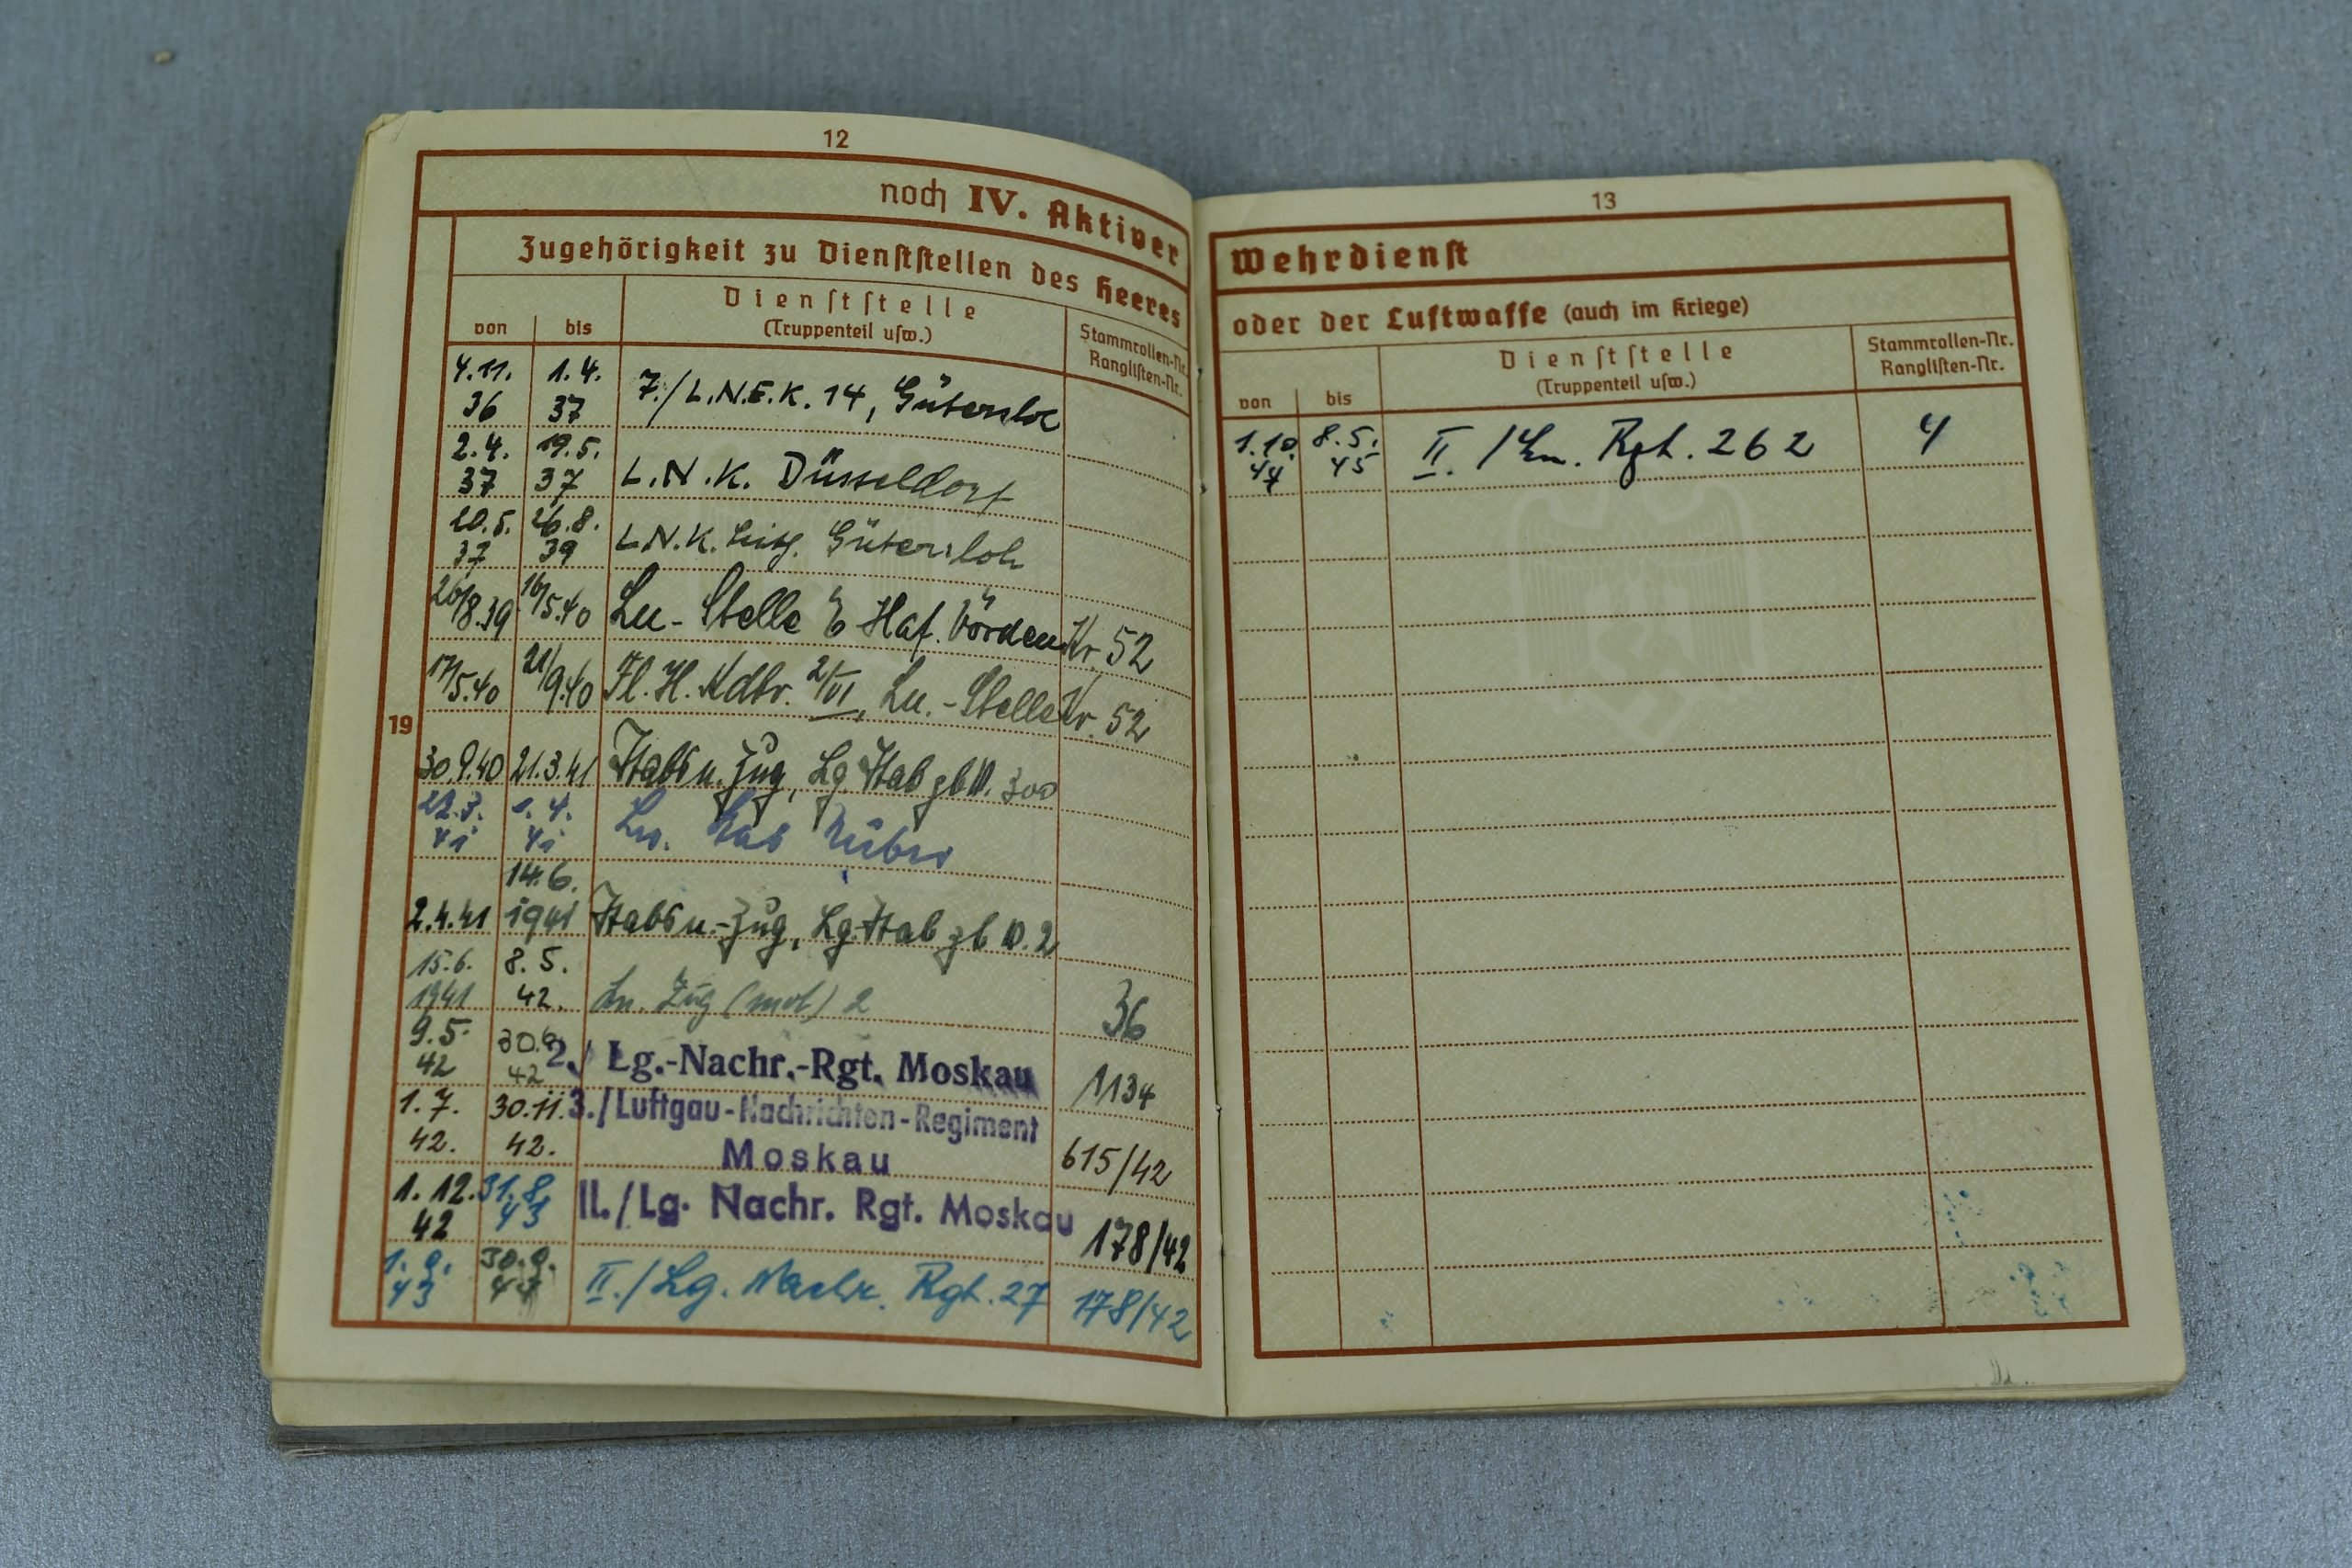 12
noch IV. Aktiver
Zugehörigkeit zu Dienststellen des Heeres
von bis Dienststelle
(Truppenteil usw.)
Stammrollen-Nr.
Ranglisten-Nr.
4.11. 36 1.4. 37 7./L.N.E.K. 14, Gütersloh
2.4. 37 19.5. 37 L.N.K. Düsseldorf
20.5. 37 26.8. 39 L.N.K. Gütersloh
26/8.39 16/5.40 Ln-Stelle E Haf. Vörden Nr. 52
17/5.40 21/9.40 Fl. H. Kdtr. 2/VI, Ln.-Stelle Nr. 52
19
30.9.40 21.3.41 Stabsn. Zug, Lg. Stab zbV. 300
22.3. 41 1.4. 41 Ln.
2.4.41 14.6. 1941 Stabsn.-Zug, Lg. Stab zbV. 2
15.6. 1941 8.5. 42. Ln. Zug (mot) 2 36
9.5. 42 30.6. 42 2./Lg.-Nachr.-Rgt. Moskau 1134
1.7. 42. 30.11. 42. 3./Luftgau-Nachrichten-Regiment
Moskau 615/42
1.12. 42 31.8. 43 II./Lg. Nachr. Rgt. Moskau 178/42
1.9. 43 30.9. 44 II./Lg. Nachr. Rgt. 27 178/42
13
Wehrdienst
oder der Luftwaffe (auch im Kriege)
von bis Dienststelle
(Truppenteil usw.)
Stammrollen-Nr.
Ranglisten-Nr.
1.10. 44 8.5. 45 II./Ln. Rgt. 262 4